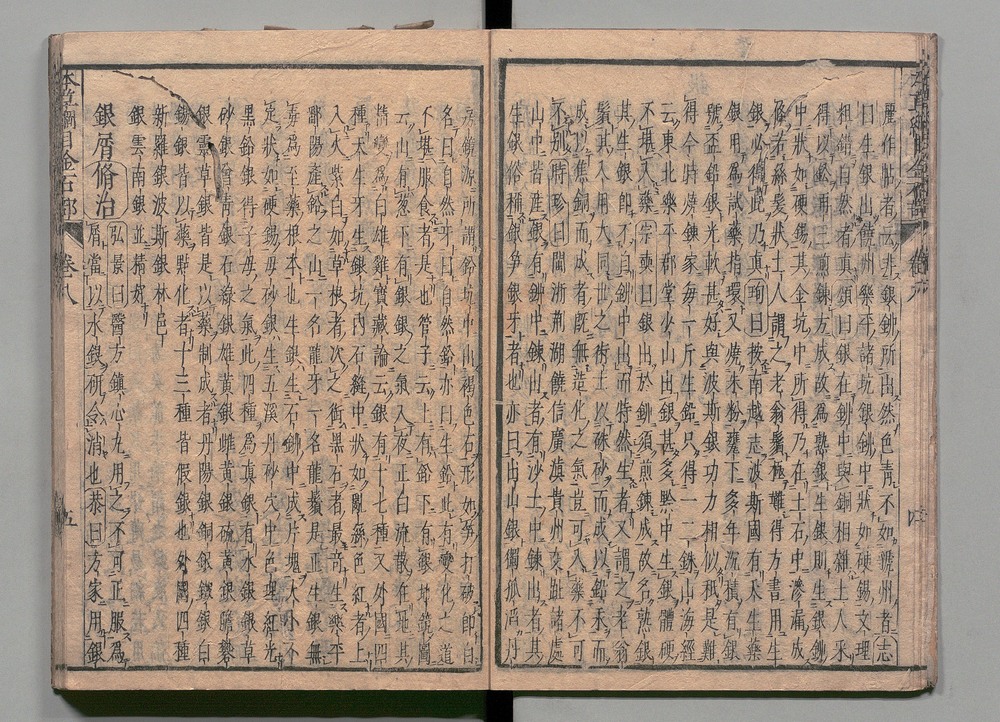 麗作帖者云非銀鉚所出然色青不如虢州者志
曰生銀出饒州樂平諸坑銀鉚中狀如硬錫文理
粗錯自然者真頌曰銀在鉚中與銅相雜土人采
得以鉛再三煎鍊方成故為熟銀生銀則生銀鉚
中狀如硬錫其金坑中所得乃在土石中滲漏成
條若絲髮狀土人謂之老翁鬚極難得方書用生
銀必得此乃真珣曰按南越志波斯國有天生藥
銀用為試藥指環又燒朱粉甕下多年沉積有銀
號盃鉛銀光軟甚好與波斯銀功力相似秖是難
得今時燒鍊家每一斤生鉛只得一二銖山海經
云東北樂平郡堂少山出銀甚多黔中生銀體硬
不堪入藥宗奭曰銀出於鉚須煎鍊成故名熟銀
其生銀即不自鉚中出而特然生者又謂之老翁
鬚其入用大同世之術士以硃砂而成以鉛汞而
成以焦銅而成者既無造化之氣豈可入藥不可
不別時珍曰閩浙荊湖饒信廣滇貴州交趾諸處
山中皆産銀有鉚中鍊出者有沙土中鍊出者其
生銀俗稱銀筍銀牙者也亦曰出山銀獨孤滔丹
房鏡源所謂鉛坑中出褐色石形如筍打破即白
名曰自然牙曰自然鉛亦曰生鉛此有變化之道
不堪服食者是也管子云上有鉛下有銀地鏡圖
云山有葱下有銀銀之氣入夜正白流散在地其
精變為白雄雞寶藏論云銀有十七種又外國四
種天生牙生銀坑内石縫中狀如亂絲色紅者上
入火紫白如草根者次之銜黑石者最奇生樂平
鄱陽産鉛之山一名龍牙一名龍鬚是正生銀無
毒為至藥根本也生銀生石鉚中成片塊大小不
定狀如硬錫母砂銀生五溪丹砂穴中色理紅光
黑鉛銀得子母之氣此四種為真銀有水銀銀草
砂銀曾青銀石綠銀雄黃銀雌黃銀硫黃銀膽礬
銀靈草銀皆是以藥制成者丹陽銀銅銀鐵銀白
錫銀皆以藥點化者十三種皆假銀也外國四種
新羅銀波斯銀林邑
銀雲南銀並精好
銀屑脩治
弘景曰醫方鎮心丸用之不可正服為
屑當以水銀研令消也恭曰方家用銀
本草綱目金石部
卷八
五